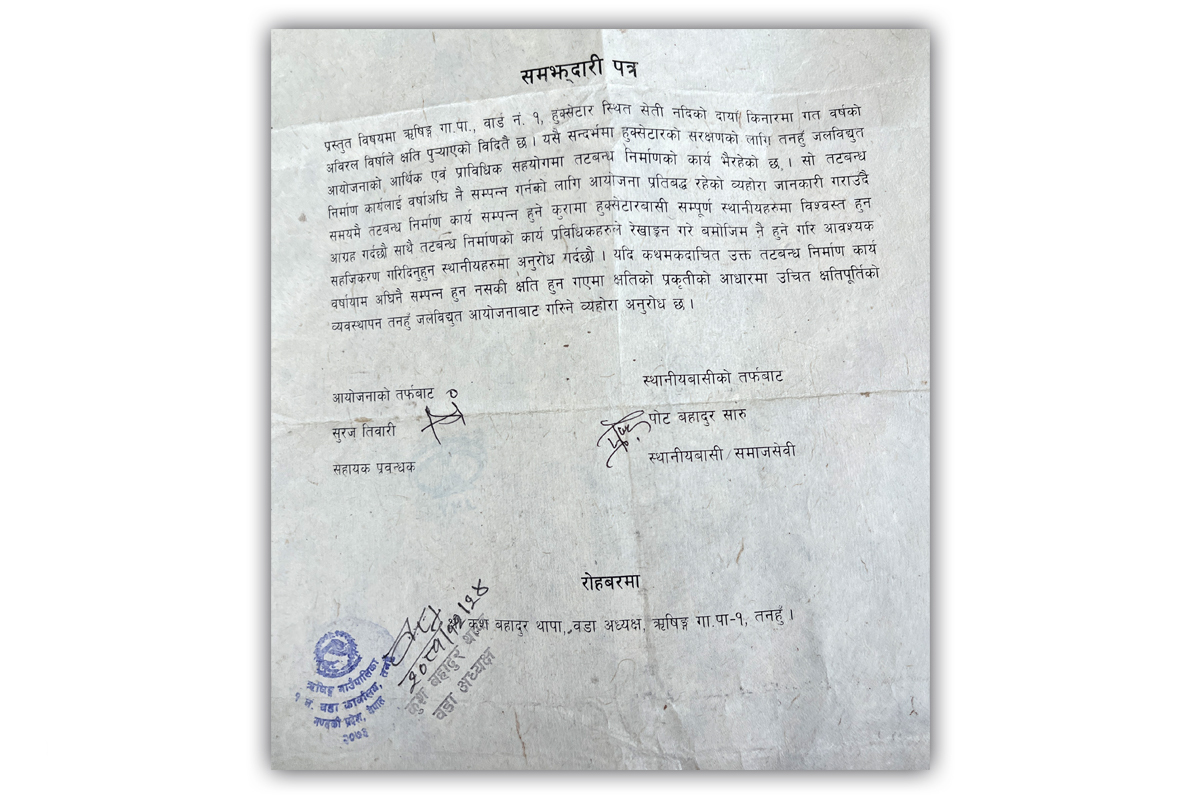 समझ्दारी पत्र
प्रस्तुत विषयमा ऋषिङ्ग गा.पा., वार्ड नं. १, हुक्सेटार स्थित सेती नदिको दायाँ किनारमा गत वर्षको
अविरल वर्षाले क्षति पुऱ्याएको विदितै छ । यसै सन्दर्भमा हुक्सेटारको सरक्षणको लागि तनहुँ जलविद्युत
आयोजनाको आर्थिक एवं प्राविधिक सहयोगमा तटबन्ध निर्माणको कार्य भैरहेको छ । सो तटबन्ध
निर्माण कार्यलाई वर्षाअघि नै सम्पन्न गर्नको लागि आयोजना प्रतिबद्ध रहेको व्यहोरा जानकारी गराउँदै
समयमै तटबन्ध निर्माण कार्य सम्पन्न हुने कुरामा हुक्सेटारबासी सम्पूर्ण स्थानीयहरुमा विश्वस्त हुन
आग्रह गर्दछौ साथै तटबन्ध निर्माणको कार्य प्रविधिकहरुले रेखाङ्कन गरे बमोजिम नै हुने गरि आवश्यक
सहजिकरण गरिदिनुहुन स्थानीयहरुमा अनुरोध गर्दछौ । यदि कथमकदाचित उक्त तटबन्ध निर्माण कार्य
वर्षायाम अघिनै सम्पन्न हुन नसकी क्षति हुन गएमा क्षतिको प्रकृतीको आधारमा उचित क्षतिपूर्तिको
व्यवस्थापन तनहुँ जलविद्युत आयोजनाबाट गरिने व्यहोरा अनुरोध छ ।
आयोजनाको तर्फबाट
सुरज तिवारी
सहायक प्रवन्धक
स्थानीयबासीको तर्फबाट
पोट बहादुर सारु
स्थानीयबासी/समाजसेवी
रोहबरमा
कुश बहादुर थापा, वडा अध्यक्ष, ऋषिङ्ग गा.पा-१, तनहुँ ।
कुश बहादुर थापा
वडा अध्यक्ष
ऋषिङ्ग गाउँपालिका
१ नं. वडा कार्यालय, तनहुँ
गण्डकी प्रदेश, नेपाल
२०७३